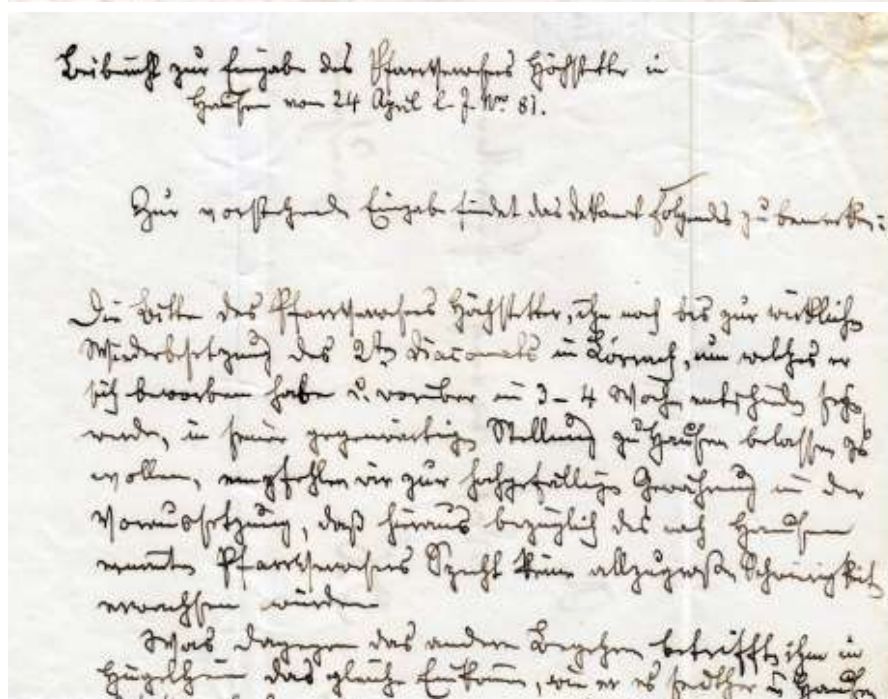 Beibericht zur Eingabe des Pfarrverwesers Höchstetter in
Hausen vom 24 April l. J. Nro 81.
Zur vorstehenden Eingabe findet das Dekanat Folgendes zu bemerken:
Die Bitte des Pfarrverwesers Höchstetter, ihn noch bis zur wirklichen
Wiederbesetzung des 2ten Diaconats in Lörrach, um welches er
sich beworben habe u. worüber in 3-4 Wochen entschieden sein
werde, in seiner gegenwärtigen Stellung zu Hausen belassen zu
wollen, empfehlen wir zur hochgefälligen Gewährung in der
Voraussetzung, daß hieraus bezüglich des nach Hausen
ernannten Pfarrverwesers Specht keine allzugroßen Schwierigkeiten
erwachsen würden
Was dagegen das andere Begehren betrifft, ihm in
Hügelheim das gleiche Einkommen, wie er es seither in Hausen